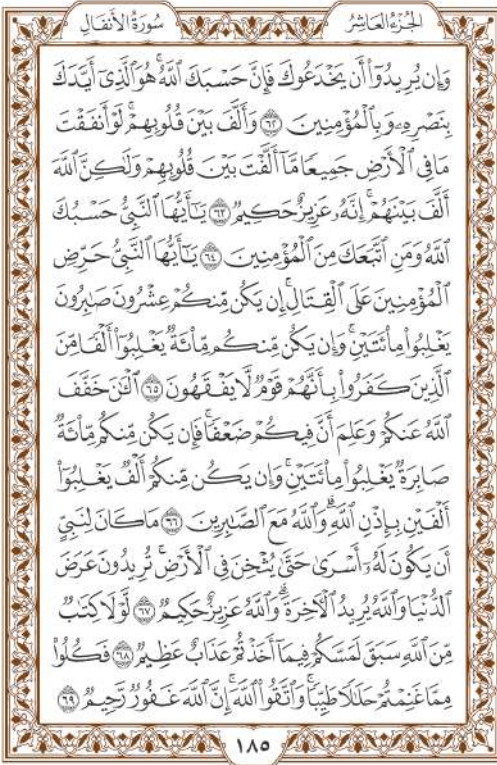 الجُزْءُ العَاشِرُ سُورَةُ الأَنفَالِ
وَإِن يُرِيدُوٓاْ أَن يَخْدَعُوكَ فَإِنَّ حَسْبَكَ ٱللَّهُۚ هُوَ ٱلَّذِىٓ أَيَّدَكَ
بِنَصْرِهِۦ وَبِٱلْمُؤْمِنِينَ ۝٦٢ وَأَلَّفَ بَيْنَ قُلُوبِهِمْۚ لَوْ أَنفَقْتَ
مَا فِى ٱلْأَرْضِ جَمِيعًا مَّآ أَلَّفْتَ بَيْنَ قُلُوبِهِمْ وَلَٰكِنَّ ٱللَّهَ
أَلَّفَ بَيْنَهُمْۚ إِنَّهُۥ عَزِيزٌ حَكِيمٌ ۝٦٣ يَٰٓأَيُّهَا ٱلنَّبِىُّ حَسْبُكَ
ٱللَّهُ وَمَنِ ٱتَّبَعَكَ مِنَ ٱلْمُؤْمِنِينَ ۝٦٤ يَٰٓأَيُّهَا ٱلنَّبِىُّ حَرِّضِ
ٱلْمُؤْمِنِينَ عَلَى ٱلْقِتَالِۚ إِن يَكُن مِّنكُمْ عِشْرُونَ صَٰبِرُونَ
يَغْلِبُواْ مِاْئَتَيْنِۚ وَإِن يَكُن مِّنكُم مِّاْئَةٌ يَغْلِبُوٓاْ أَلْفًا مِّنَ
ٱلَّذِينَ كَفَرُواْ بِأَنَّهُمْ قَوْمٌ لَّا يَفْقَهُونَ ۝٦٥ ٱلْـَٰٔنَ خَفَّفَ
ٱللَّهُ عَنكُمْ وَعَلِمَ أَنَّ فِيكُمْ ضَعْفًاۚ فَإِن يَكُن مِّنكُم مِّاْئَةٌ
صَابِرَةٌ يَغْلِبُواْ مِاْئَتَيْنِۚ وَإِن يَكُن مِّنكُمْ أَلْفٌ يَغْلِبُوٓاْ
أَلْفَيْنِ بِإِذْنِ ٱللَّهِۗ وَٱللَّهُ مَعَ ٱلصَّٰبِرِينَ ۝٦٦ مَا كَانَ لِنَبِىٍّ
أَن يَكُونَ لَهُۥٓ أَسْرَىٰ حَتَّىٰ يُثْخِنَ فِى ٱلْأَرْضِۚ تُرِيدُونَ عَرَضَ
ٱلدُّنْيَا وَٱللَّهُ يُرِيدُ ٱلْـَٔاخِرَةَۗ وَٱللَّهُ عَزِيزٌ حَكِيمٌ ۝٦٧ لَّوْلَا كِتَٰبٌ
مِّنَ ٱللَّهِ سَبَقَ لَمَسَّكُمْ فِيمَآ أَخَذْتُمْ عَذَابٌ عَظِيمٌ ۝٦٨ فَكُلُواْ
مِمَّا غَنِمْتُمْ حَلَٰلًا طَيِّبًاۚ وَٱتَّقُواْ ٱللَّهَۚ إِنَّ ٱللَّهَ غَفُورٌ رَّحِيمٌ ۝٦٩
١٨٥